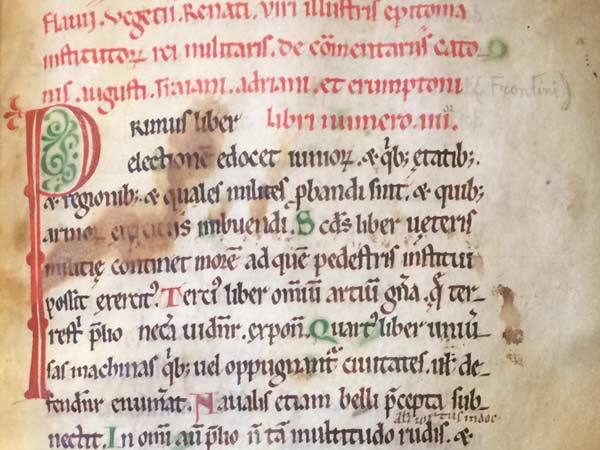 Flauii . Vegetii . Renati . viri illustris epitoma
institutoꝝ rei militaris . de cōmentariis Cato
nis . augusti . Traiani . adriani . et erumptoni
(Frontini)
Primus liber libri numero .iiii.
electionē edocet iunioꝝ . ⁊ qͥb; ętatib;.
⁊ regionib; ⁊ quales milites ꝓbandi sint . ⁊ quib;
armoꝝ imbuendi . Scd̄s liber ueteris
militię continet morē ad quē pedestris institui
possit exercitꝰ. Terciꝰ liber omniū artiū gn̄a . q̄ ter-
restri p̄lio necē uident̄r . expoñ. Quartꝰ liber uniū-
sas machinas qͥb; uel oppugnant̄ ciuitates . uł de-
fendunt̄ enumāt . Naualis etiam belli p̄cepta sub-
nectit . In omī aū p̄lio ñ tā multitudo rudis . ⁊